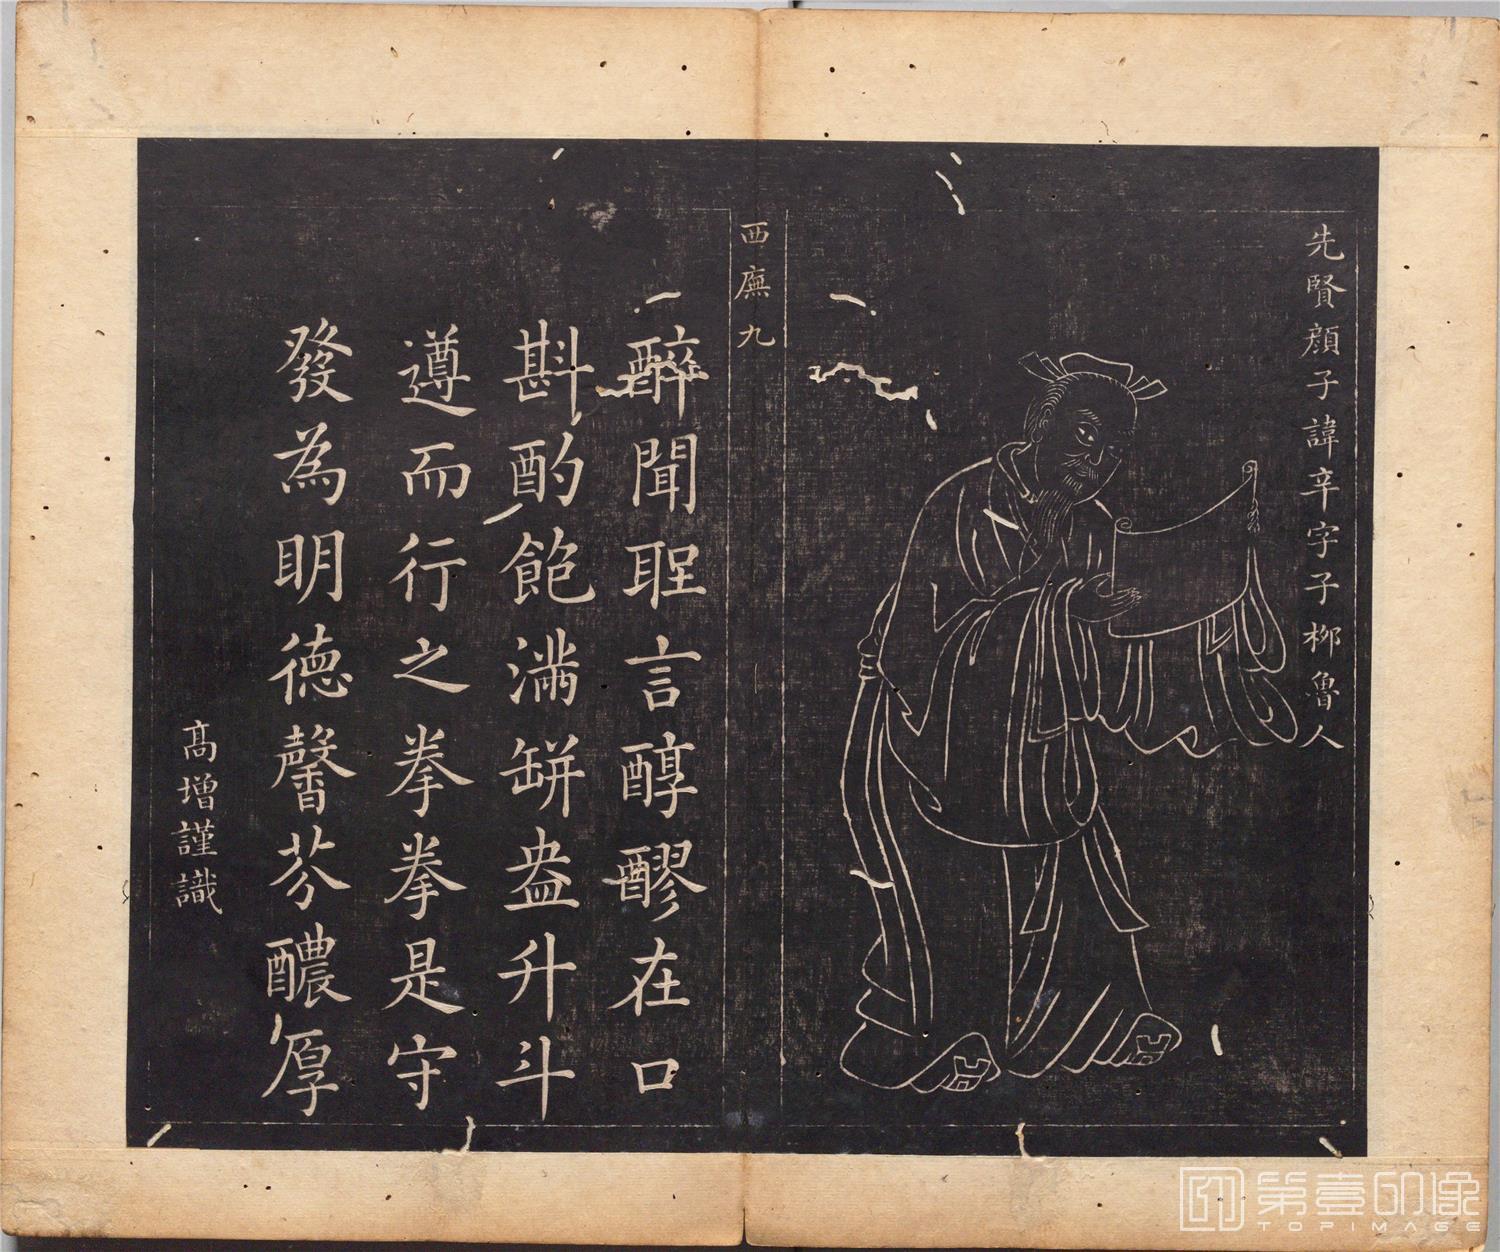 先賢顏子諱辛字子柳魯人
西廡九
醉聞聖言醇醪在口
斟酌飽滿缾盎升斗
遵而行之拳拳是守
發為明德馨芬醲厚
高增謹識
第壹印像
TOPIMAGE